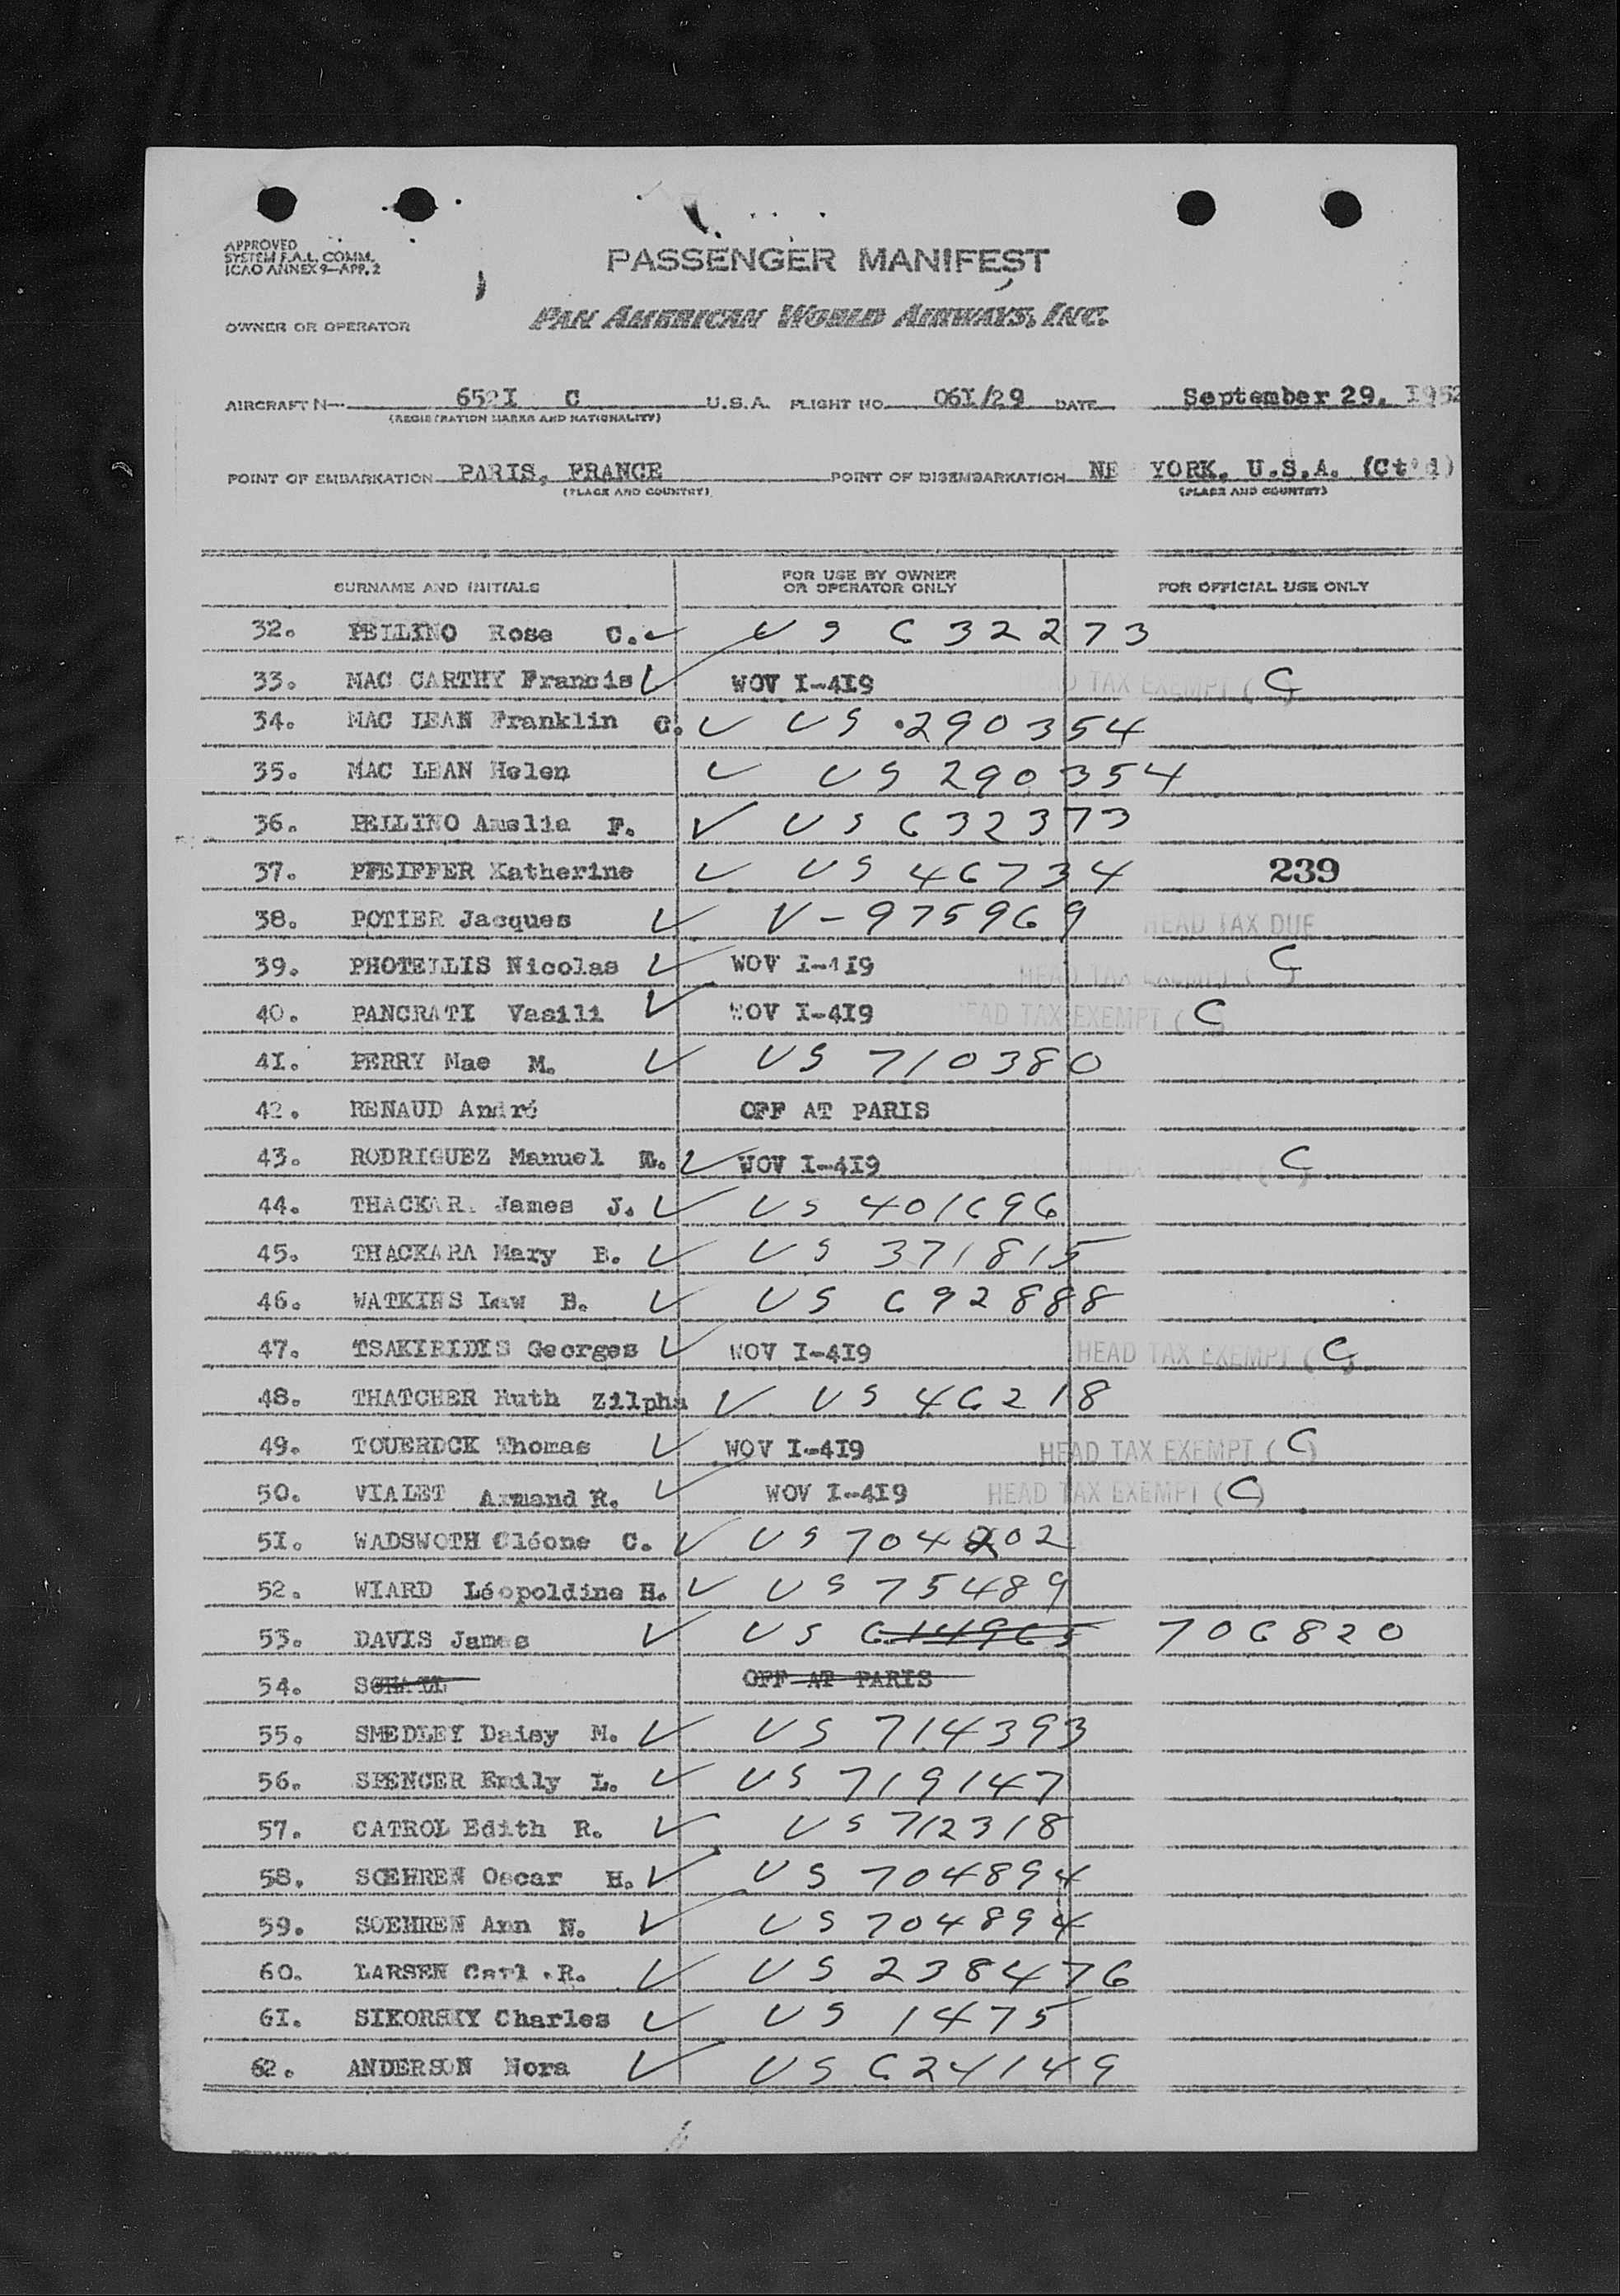 APPROVED
SYSTEM F.A.L. COMM.
ICAO ANNEX 9—APP. 2
PASSENGER MANIFEST
OWNER OR OPERATOR PAN AMERICAN WORLD AIRWAYS, INC.
AIRCRAFT N— 6521 C U.S.A. FLIGHT NO. 06I/29 DATE September 29, 1952
(REGISTRATION MARKS AND NATIONALITY)
POINT OF EMBARKATION PARIS, FRANCE POINT OF DISEMBARKATION NE YORK, U.S.A. (Ct'd)
(PLACE AND COUNTRY) (PLACE AND COUNTRY)
SURNAME AND INITIALS FOR USE BY OWNER OR OPERATOR ONLY FOR OFFICIAL USE ONLY
32. PEILINO Rose C. US 632273
33. MAC CARTHY Francis WOV I-4I9 D TAX EXEMPT ( C
34. MAC LEAN Franklin G. US 290354
35. MAC LEAN Helen US 290354
36. PEILINO Amelia F. US 632373
37. PFEIFFER Katherine US 46734 239
38. POTIER Jacques V-975969 HEAD TAX DUE
39. PHOTELLIS Nicolas WOV I-4I9 HEAD TAX EXEMPT ( C
40. PANCRATI Vasili WOV I-4I9 EAD TAX EXEMPT ( C
41. PERRY Mae M. US 710380
42. RENAUD André OFF AT PARIS
43. RODRIGUEZ Manuel WOV I-4I9 C
44. THACKAR James J. US 401696
45. THACKARA Mary B. US 371815
46. WATKINS Law B. US 692888
47. TSAKIRIDIS Georges WOV I-4I9 HEAD TAX EXEMPT ( C
48. THATCHER Ruth Zilpha US 46218
49. TOUERDCK Thomas WOV I-4I9 HEAD TAX EXEMPT ( C )
50. VIALET Armand R. WOV I-4I9 HEAD TAX EXEMPT ( C )
5I. WADSWOTH Cléone C. US 704202
52. WIARD Léopoldine H. US 75489
53. DAVIS James US 614965 706820
54. SCHALL OFF AT PARIS
55. SMEDLEY Daisy M. US 714393
56. SPENCER Emily L. US 719147
57. CATROL Edith R. US 712318
58. SOEHREN Oscar H. US 704894
59. SOEHREN Ann N. US 704894
60. LARSEN Carl R. US 238476
6I. SIKORSKY Charles US 1475
62. ANDERSON Nora US 624149